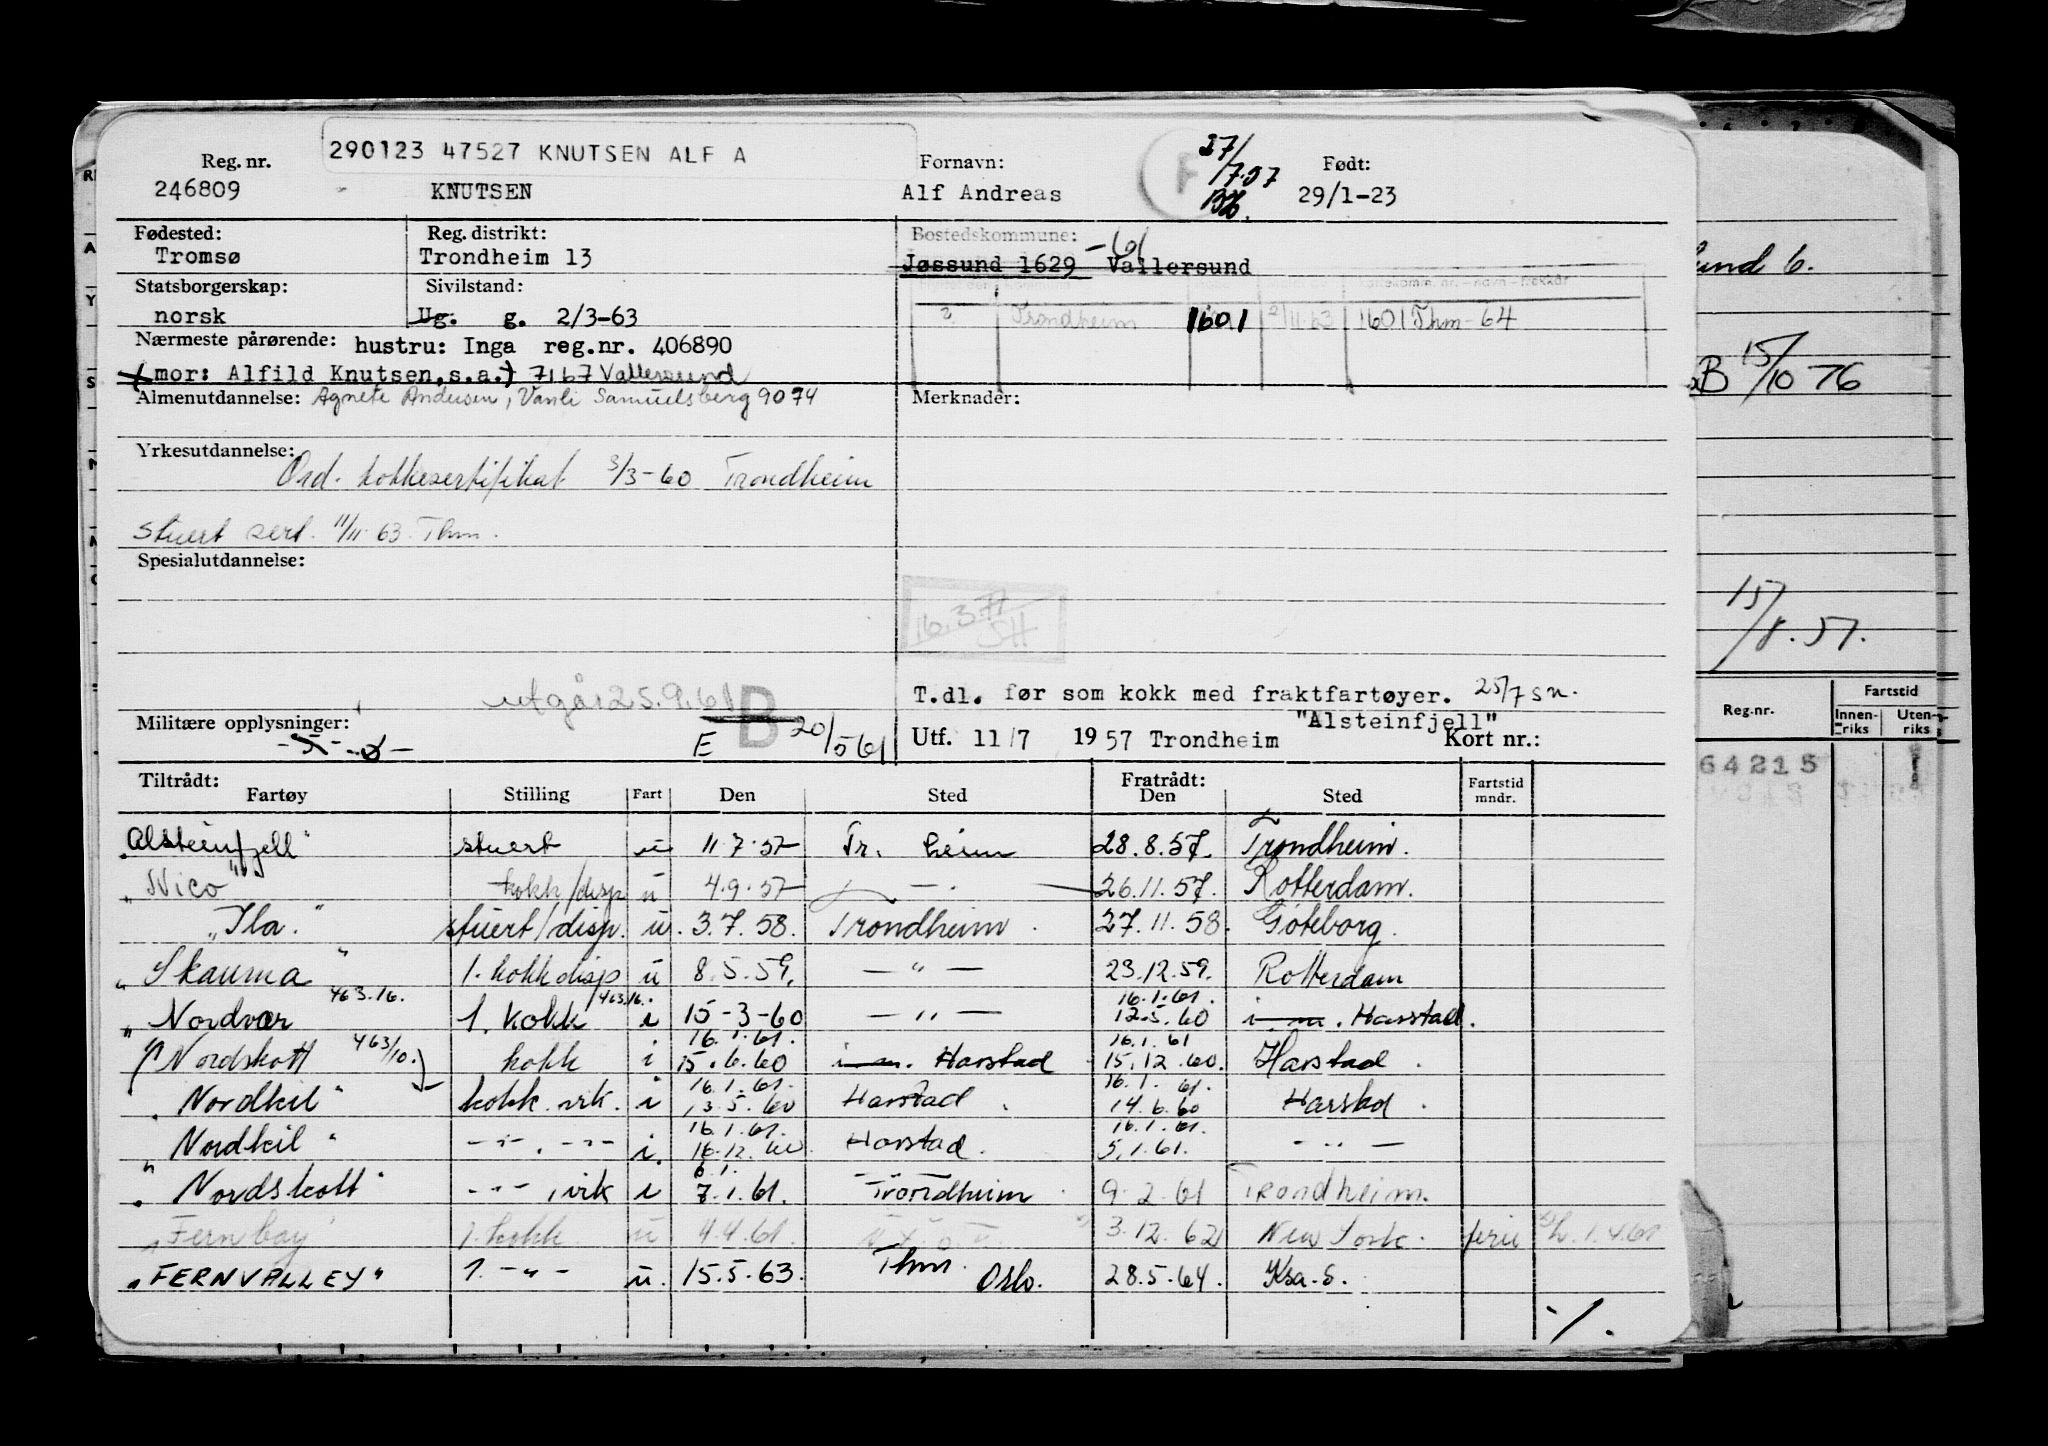 290123 47527 KNUTSEN ALF A
Reg. nr. Fornavn: 27/7.57 Født:
246809 KNUTSEN Alf Andreas 29/1-23
Fødested: Reg. distrikt: Bostedskommune: -61
Tromsø Trondheim 13 Jøssund 1629 Vallersund
Statsborgerskap: Sivilstand:
norsk Ug. g. 2/3-63 2. Trondheim 1601 2/11.63 1601 Thm-64
Nærmeste pårørende: hustru: Inga reg.nr. 406890
(mor: Alfild Knutsen, s.a.) 7167 Vallersund
Almenutdannelse: Agnete Andersen, Vanli Samuelsberg 9074 Merknader:
Yrkesutdannelse:
Ord. kokkesertifikat 3/3-60 Trondheim
stuert sert. 11/11-63 Thm.
Spesialutdannelse:
16.3.77
SH
utgår 25.9.61 B T.dl. før som kokk med fraktfartøyer. 25/7 sn.
"Alsteinfjell"
Militære opplysninger: E 20/5 61 Utf. 11/7 1957 Trondheim Kort nr.:
Tiltrådt: Fratrådt: Fartstid
Fartøy Stilling Fart Den Sted Den Sted mndr.
Alsteinfjell" stuert u 11.7.57 Tr. heim 28.8.57. Trondheim.
"Nico" kokk/disp u 4.9.57 — 26.11.57. Rotterdam.
"Ila." stuert/disp. u. 3.7.58. Trondheim 27.11.58. Göteborg.
"Skauma" 1. kokk disp u 8.5.59. — " — 23.12.59. Rotterdam
463.16. 463.16. 16.1.61.
"Nordvar 1. kokk i 15-3-60 — " — 12.5.60 i. m. Harstad.
463/10. 16.1.61. 16.1.61
"Nordskott kokk i 15.6.60 i m. Harstad 15.12.60. Harstad
16.1.61. 16.1.61.
"Nordkil" kokk. virk. i 13.5.60 Harstad 14.6.60 Harstad.
16.1.61. 16.1.61.
"Nordkil" -"- . -"- i. 16.12. Harstad. 5.1.61. - " -
6.1.
"Nordskott" -"- , virk i 7.1.61. Trondheim 9.2.61 Trondheim.
"Fernbay" 1. kokk u 4.4.61. 3.12.62 New York. ferie 1.4.61
"FERNVALLEY" 1. -"- u. 15.5.63. Thm. Oslo. 28.5.64. Ksa. S.
·/.
sund 6.
B 15/10 76
15/8.57.
Fartstid
Reg.nr. Innen-riks Uten-riks
64215